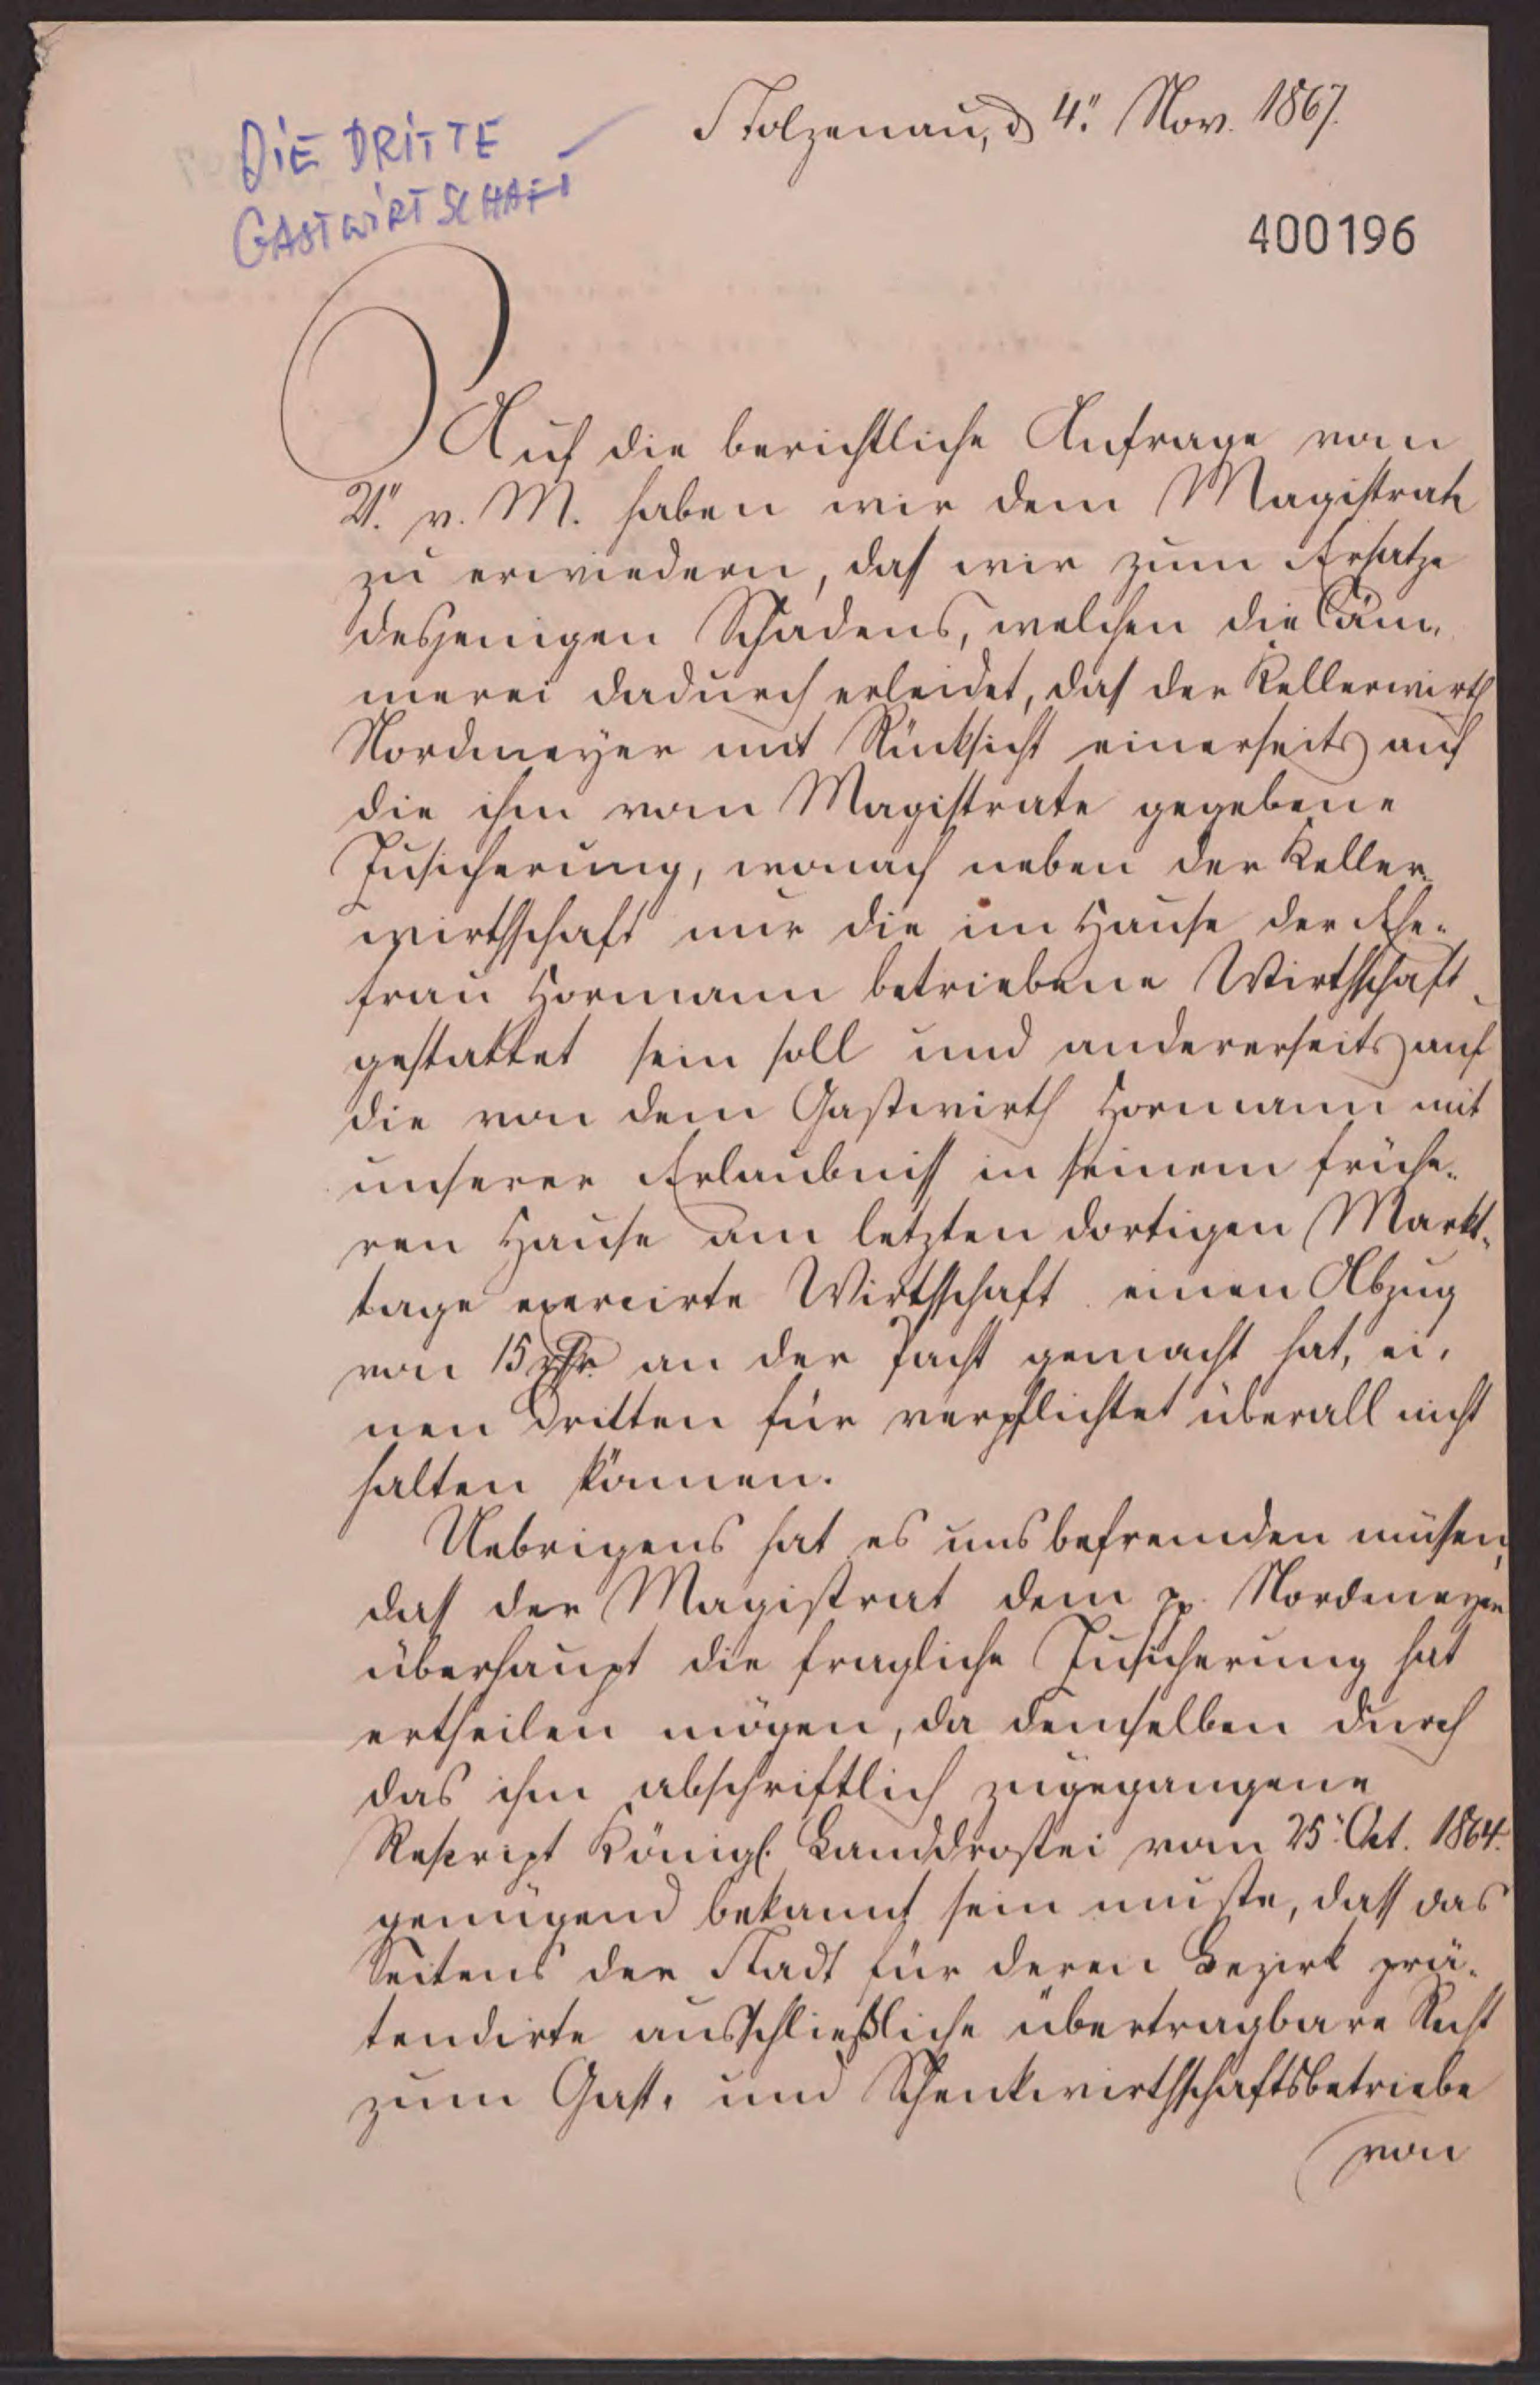 Stolzenau, d 4." Nov. 1867.
DIE DRITTE
GASTWIRTSCHAFT
400196
Auf die berichtliche Anfrage vom
21." v. M. haben wir dem Magistrate
zu erwiedern, daß wir zum Ersatze
desjenigen Schadens, welchen die Cäm-
merei dadurch erleidet, daß der Kellerwirth
Nordmeyer mit Rücksicht einerseits auf
die ihm vom Magistrate gegebene
Zusicherung, wonach neben der Keller-
wirthschaft nur die im Hause der Ehe-
frau Hormann betriebene Wirthschaft
gestattet sein soll und andererseits auf
die von dem Gastwirth Hormann mit
unserer Erlaubniß in seinem frühe-
ren Hause am letzten dortigen Markt-
tage exercirte Wirthschaft einen Abzug
von 15 rthr. an der Pacht gemacht hat, ei-
nen Dritten für verpflichtet überall nicht
halten können.
Uebrigens hat es uns befremden müßen,
daß der Magistrat dem pp. Nordmeyer
überhaupt die fragliche Zusicherung hat
ertheilen mögen, da demselben durch
das ihm abschriftlich zugegangene
Rescript Königl. Landdrostei vom 25." Oct. 1864.
genügend bekannt sein mußte, daß das
Seitens der Stadt für deren Bezirk prä-
tendirte ausschließliche übertragbare Recht
zum Gast- und Schenkwirthschaftsbetriebe
von